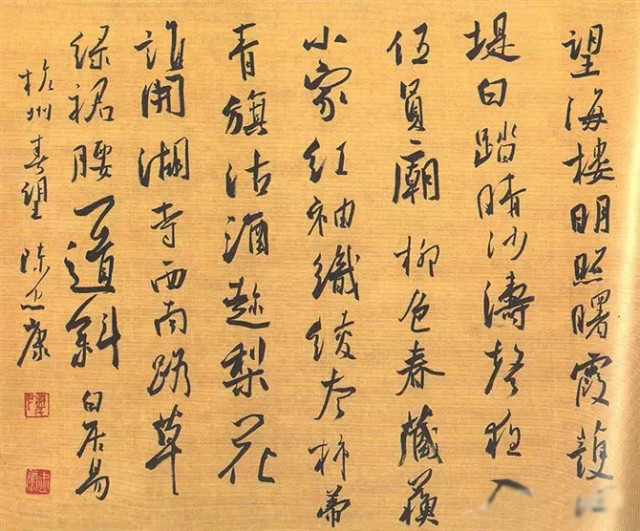 望海楼明照曙霞護
堤白踏晴沙濤聲夜入
伍員廟柳色春藏蘇
小家红袖織绫夸柿蒂
青旗沽酒趁梨花
誰開湖寺西南路草
绿裙腰一道斜 白居易
杭州春望 陈忠康